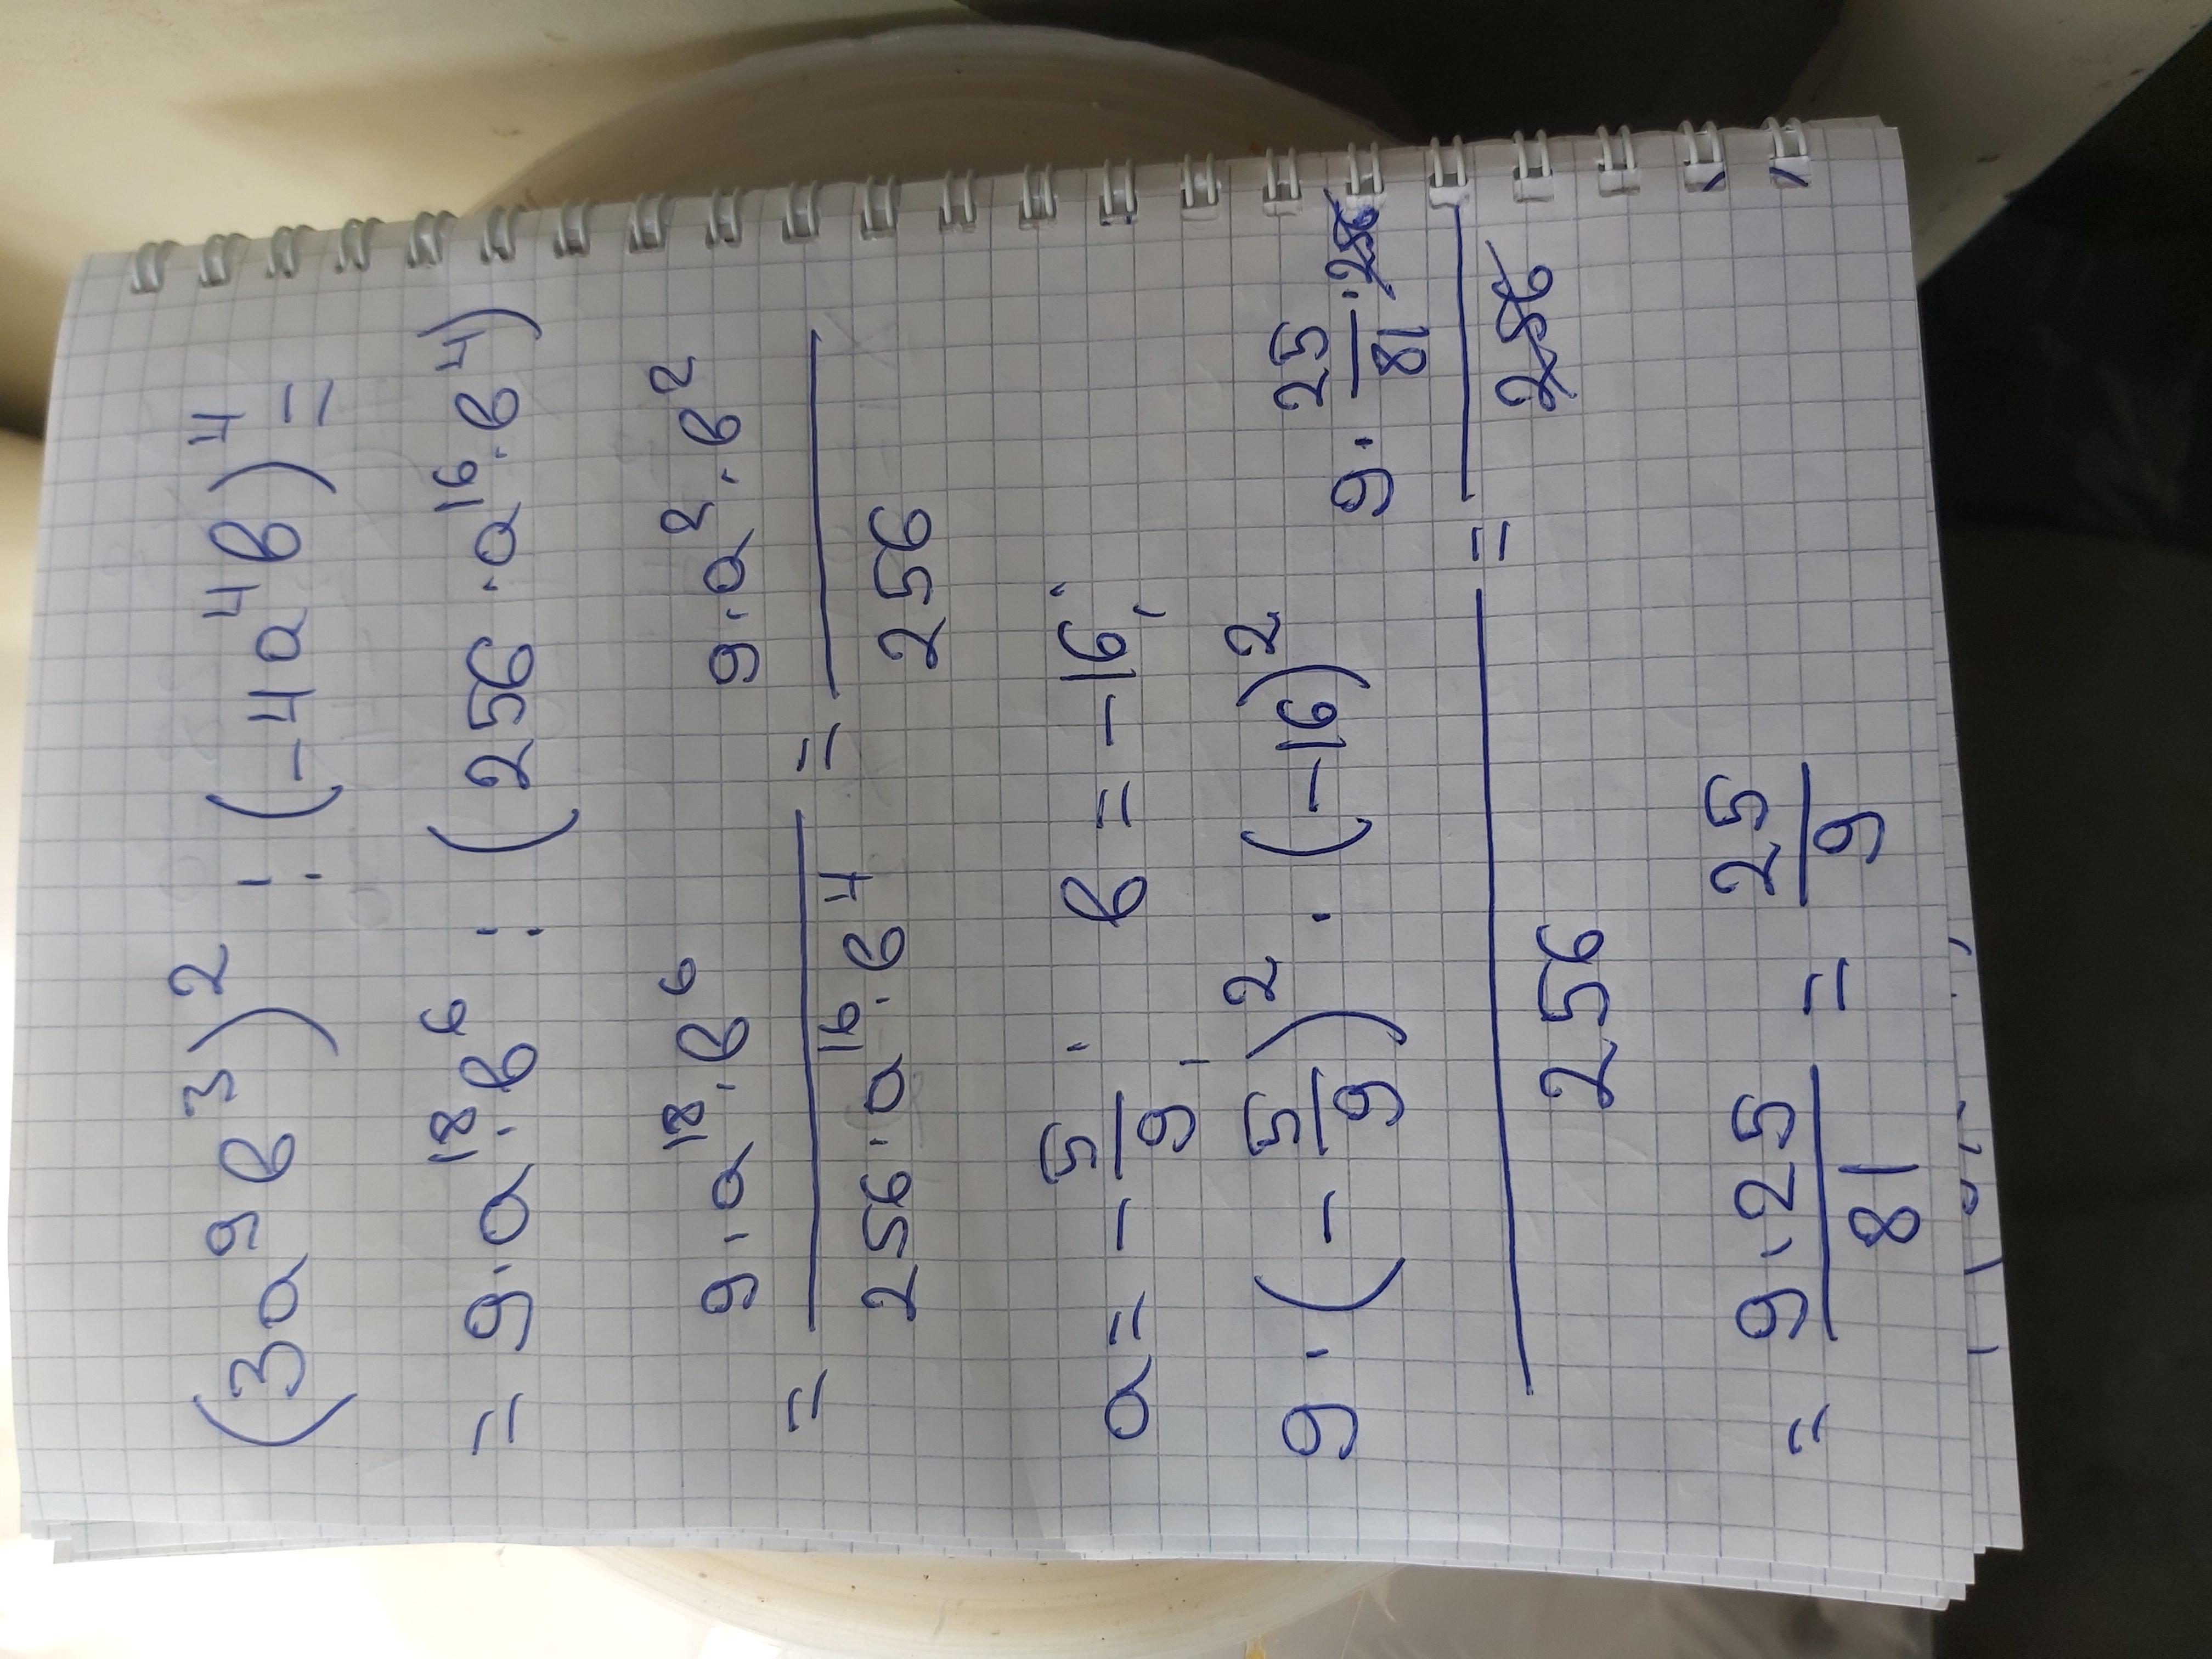 (3a⁹в³)² : (-4a⁴в)⁴ =
= 9·a¹⁸·в⁶ : (256·a¹⁶·в⁴)
= 9·a¹⁸·в⁶ / 256·a¹⁶·в⁴ = 9·a²·в² / 256
a = - 5/9; в = -16;
9·(- 5/9)²·(-16)² / 256 = 9· 25/81 ·256 / 256
= 9·25 / 81 = 25/9